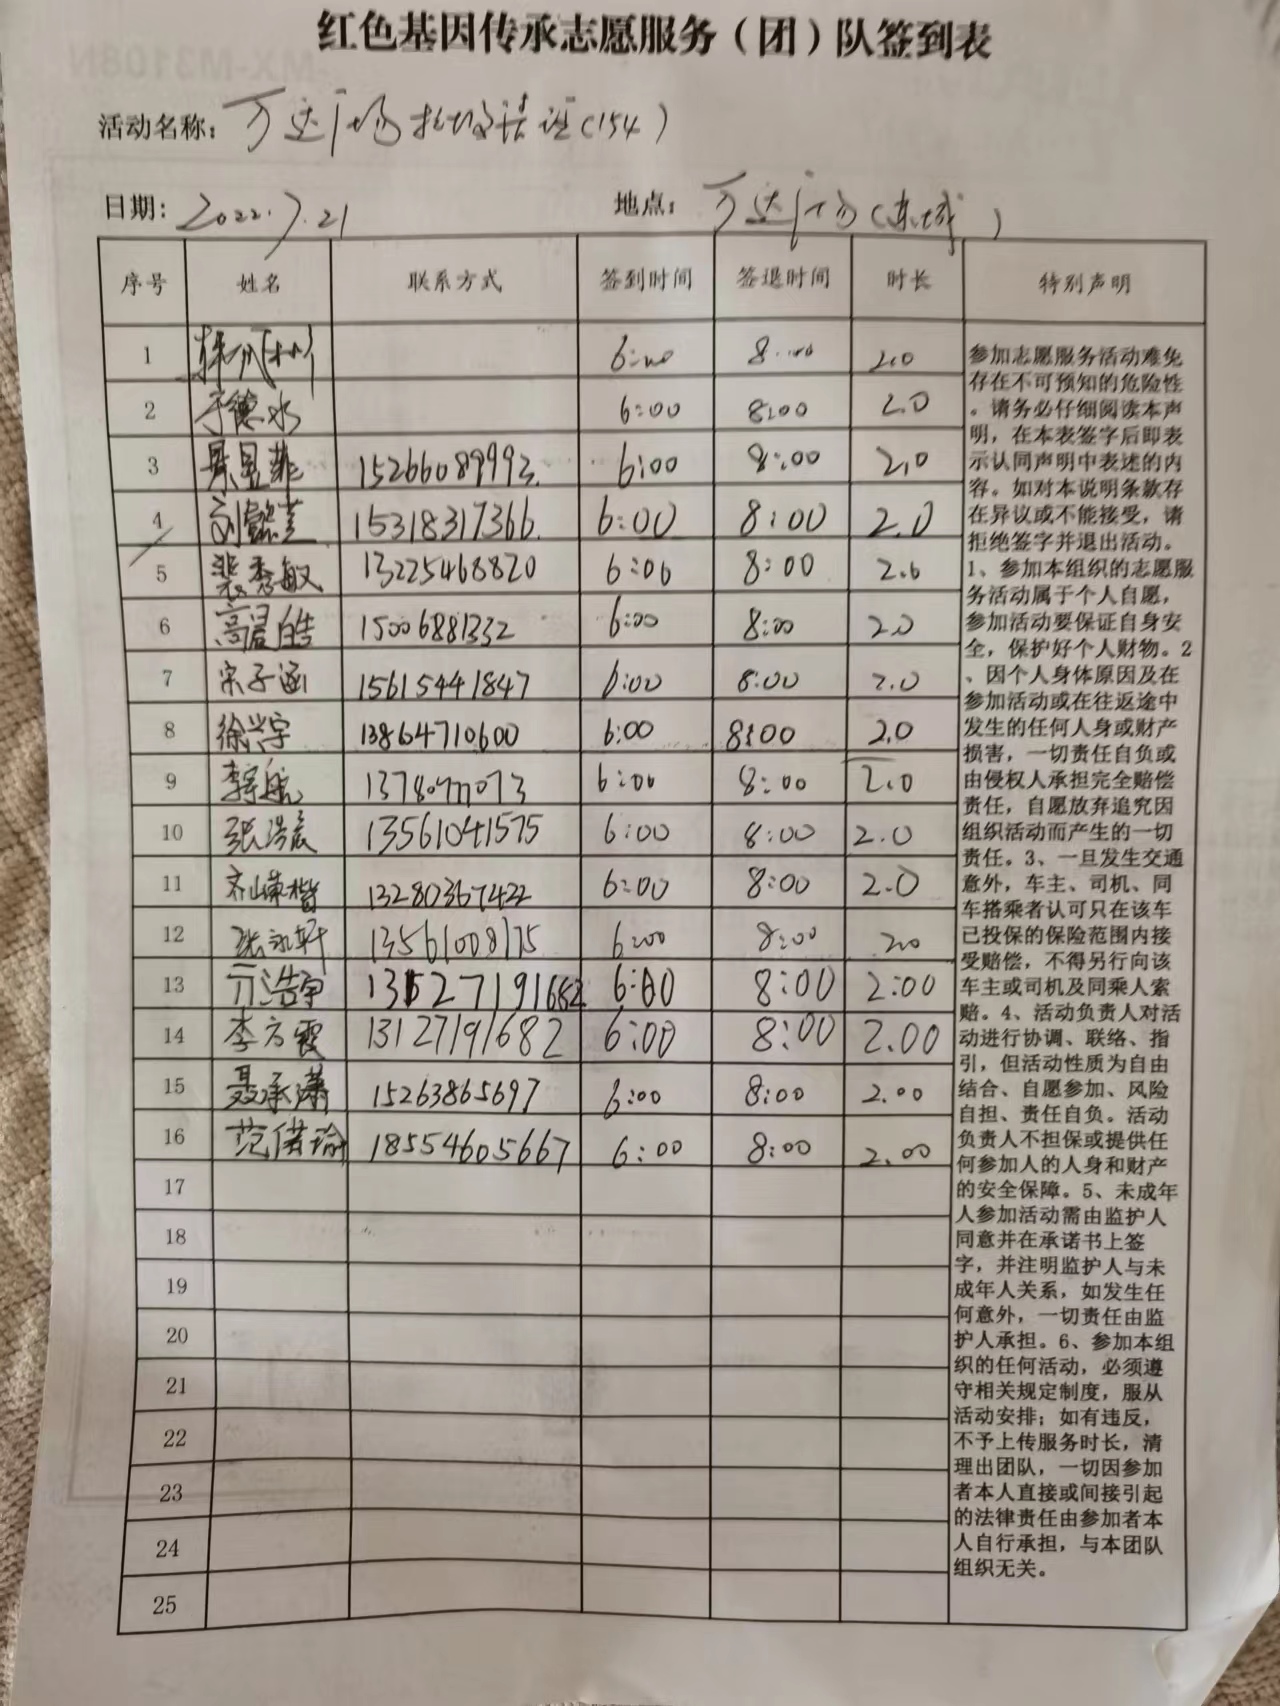 红色基因传承志愿服务（团）队签到表
活动名称： 万达广场 (154)
日期： 2022.7.21 地点： 万达广场(东城)
序号 姓名 联系方式 签到时间 签退时间 时长 特别声明
1 6:00 8:00 2.0
2 于德水 6:00 8:00 2.0
3 景昱菲 15266089993. 6:00 8:00 2.0
4 刘懿芝 15318317366 6:00 8:00 2.0
5 裴秀敏 13225468820 6:00 8:00 2.0
6 高晨皓 15006881332 6:00 8:00 2.0
7 宋子涵 15615441847 6:00 8:00 2.0
8 徐兴宇 13864710600 6:00 8:00 2.0
9 李宇航 6:00 8:00 2.0
10 张浩宸 13561041575 6:00 8:00 2.0
11 13280367422 6:00 8:00 2.0
12 张永轩 13561008175 6:00 8:00 2.0
13 亓浩宇 6:00 8:00 2:00
14 李方霞 13127191682 6:00 8:00 2.00
15 聂承潇 15263865697 6:00 8:00 2.00
16 范偌瑜 18554605667 6:00 8:00 2.00
17
18
19
20
21
22
23
24
25
参加志愿服务活动难免
存在不可预知的危险性
。请务必仔细阅读本声
明，在本表签字后即表
示认同声明中表述的内
容。如对本说明条款存
在异议或不能接受，请
拒绝签字并退出活动。
1、参加本组织的志愿服
务活动属于个人自愿，
参加活动要保证自身安
全，保护好个人财物。2
、因个人身体原因及在
参加活动或在往返途中
发生的任何人身或财产
损害，一切责任自负或
由侵权人承担完全赔偿
责任，自愿放弃追究因
组织活动而产生的一切
责任。3、一旦发生交通
意外，车主、司机、同
车搭乘者认可只在该车
已投保的保险范围内接
受赔偿，不得另行向该
车主或司机及同乘人索
赔。4、活动负责人对活
动进行协调、联络、指
引，但活动性质为自由
结合、自愿参加、风险
自担、责任自负。活动
负责人不担保或提供任
何参加人的人身和财产
的安全保障。5、未成年
人参加活动需由监护人
同意并在承诺书上签
字，并注明监护人与未
成年人关系，如发生任
何意外，一切责任由监
护人承担。6、参加本组
织的任何活动，必须遵
守相关规定制度，服从
活动安排；如有违反，
不予上传服务时长，清
理出团队，一切因参加
者本人直接或间接引起
的法律责任由参加者本
人自行承担，与本团队
组织无关。